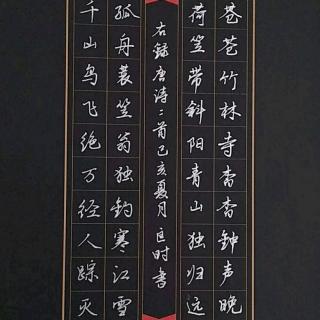 苍苍竹林寺杳杳钟声晚
荷笠带斜阳青山独归远
右录唐诗二首己亥夏月匡时书
孤舟蓑笠翁独钓寒江雪
千山鸟飞绝万径人踪灭